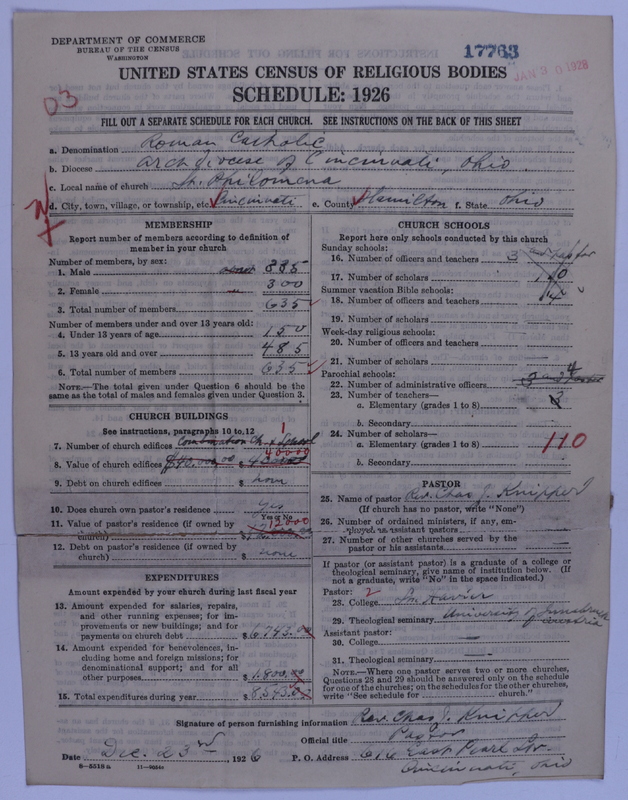 DEPARTMENT OF COMMERCE
BUREAU OF THE CENSUS
WASHINGTON
17763
JAN 30 1928
UNITED STATES CENSUS OF RELIGIOUS BODIES
SCHEDULE: 1926
03
FILL OUT A SEPARATE SCHEDULE FOR EACH CHURCH. SEE INSTRUCTIONS ON THE BACK OF THIS SHEET
a. Denomination Roman Catholic
b. Diocese Archdiocese of Cincinnati, Ohio
c. Local name of church St. Philomena
d. City, town, village, or township, etc. Cincinnati e. County Hamilton f. State Ohio
MEMBERSHIP
Report number of members according to definition of member in your church
Number of members, by sex:
1. Male 335
2. Female 300
3. Total number of members 635
Number of members under and over 13 years old:
4. Under 13 years of age 150
5. 13 years old and over 485
6. Total number of members 635
NOTE.—The total given under Question 6 should be the same as the total of males and females given under Question 3.
CHURCH BUILDINGS
See instructions, paragraphs 10 to 12
7. Number of church edifices Combination Ch. & School 1
8. Value of church edifices $40,000.00 $ 40000
9. Debt on church edifices $ none
10. Does church own pastor's residence yes
Yes or No
11. Value of pastor's residence (if owned by church) $ 12000
12. Debt on pastor's residence (if owned by church) $ none
EXPENDITURES
Amount expended by your church during last fiscal year
13. Amount expended for salaries, repairs, and other running expenses; for improvements or new buildings; and for payments on church debt $ 6743.00
14. Amount expended for benevolences, including home and foreign missions; for denominational support; and for all other purposes $ 1,800.00
15. Total expenditures during year $ 8,543.00
CHURCH SCHOOLS
Report here only schools conducted by this church
Sunday schools:
16. Number of officers and teachers 3
17. Number of scholars 110
Summer vacation Bible schools:
18. Number of officers and teachers
19. Number of scholars
Week-day religious schools:
20. Number of officers and teachers
21. Number of scholars
Parochial schools:
22. Number of administrative officers
23. Number of teachers—
a. Elementary (grades 1 to 8)
b. Secondary
24. Number of scholars—
a. Elementary (grades 1 to 8) 110
b. Secondary
PASTOR
25. Name of pastor Rev. Chas J. Knipper
(If church has no pastor, write "None")
26. Number of ordained ministers, if any, employed as assistant pastors
27. Number of other churches served by the pastor or his assistants
If pastor (or assistant pastor) is a graduate of a college or theological seminary, give name of institution below. (If not a graduate, write "No" in the space indicated.)
Pastor:
28. College St. Xavier
29. Theological seminary University of Innsbruck Austria
Assistant pastor:
30. College
31. Theological seminary
NOTE.—Where one pastor serves two or more churches, Questions 28 and 29 should be answered only on the schedule for one of the churches; on the schedules for the other churches, write "See schedule for church."
Signature of person furnishing information Rev. Chas J. Knipper
Official title Pastor
Date Dec. 23rd, 1926 P. O. Address 616 East Pearl Str.
Cincinnati, Ohio